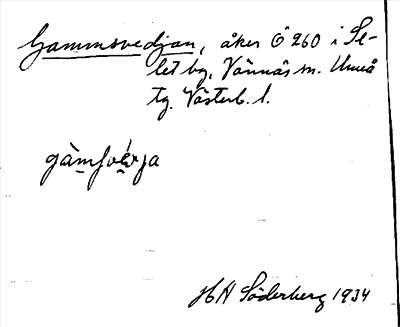 Gammsvedjan, åker Ö 260 i Se-
let by, Vännäs sn. Umeå
tg. Västerb. l.
H A Söderberg 1934